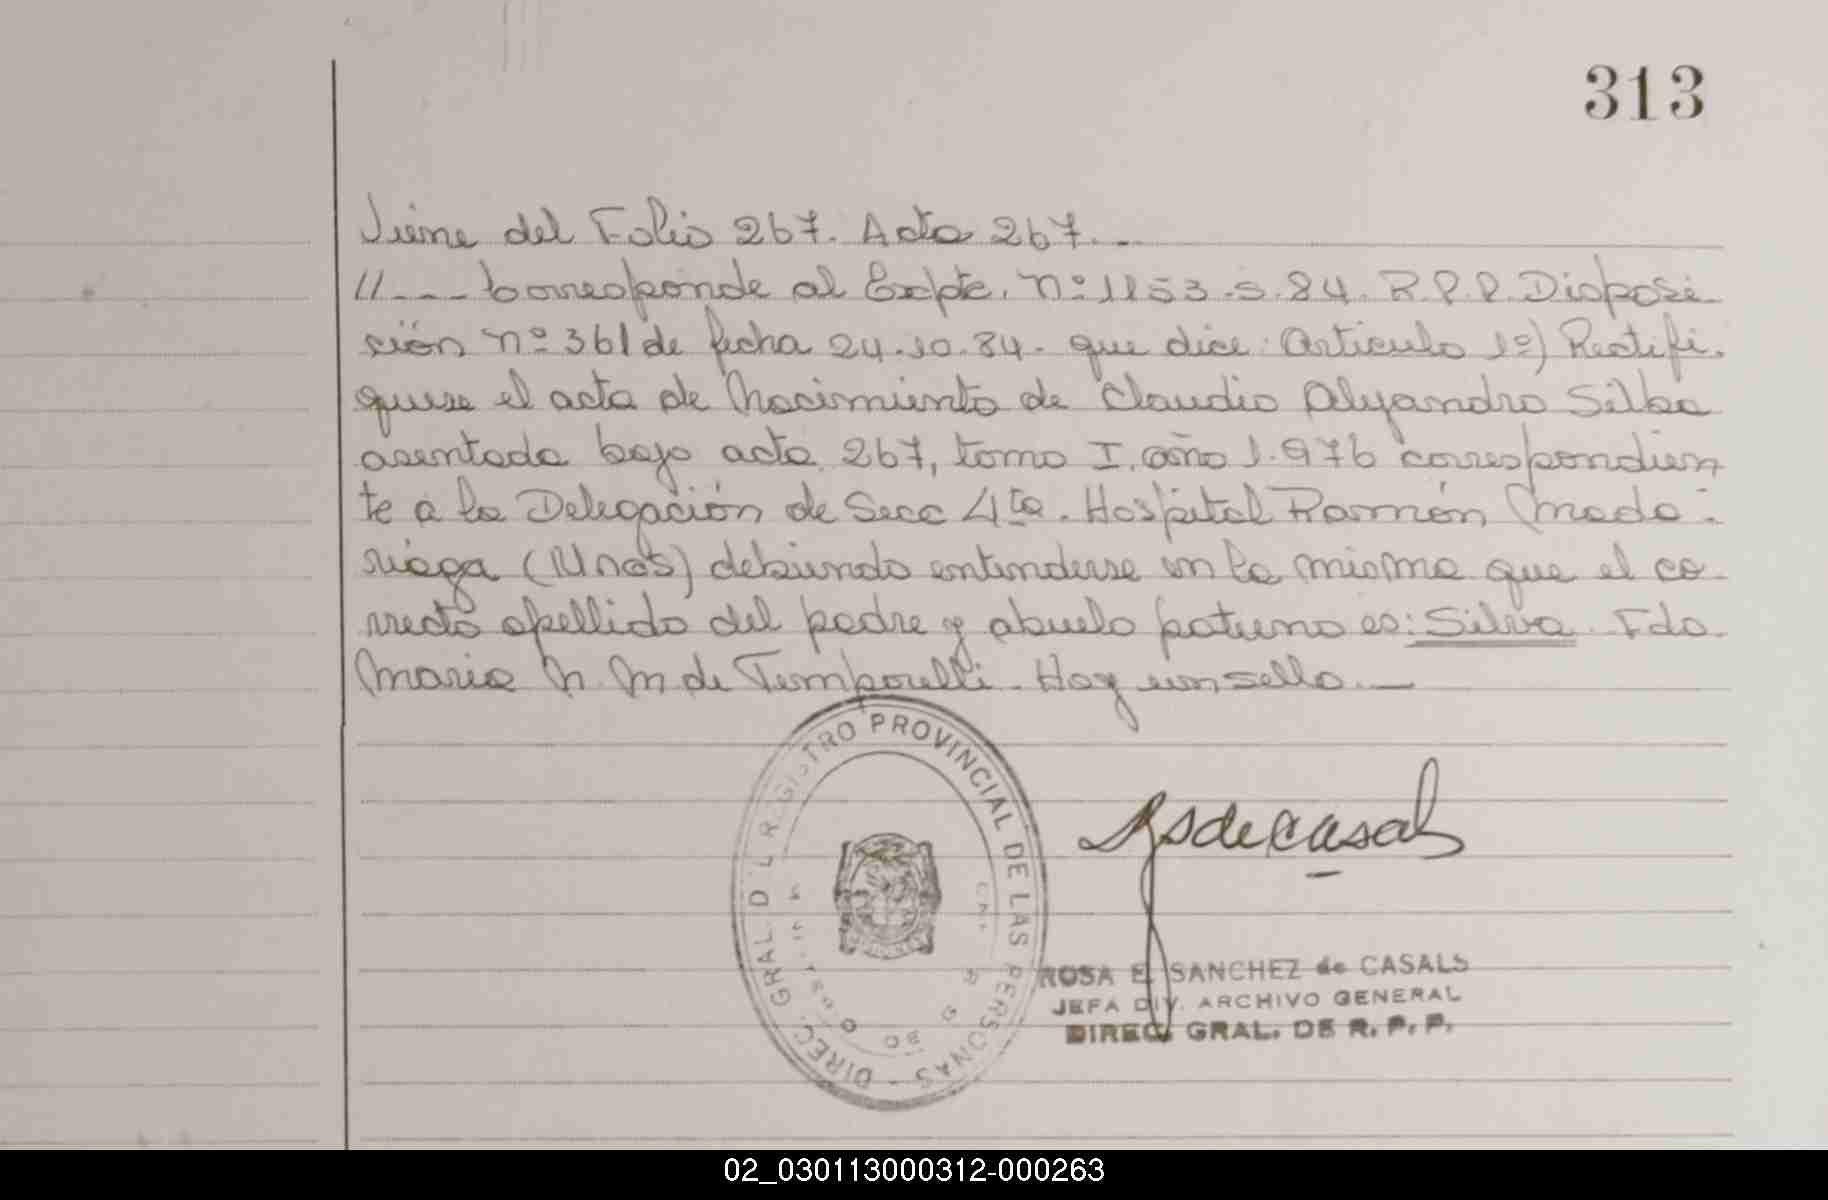 313
Viene del Folio 267. Acta 267. _
//___ Corresponde al Expte. nº 1153.S.84. R.P.P. Disposi
ción nº 361 de fecha 24.10.84. que dice: Articulo 1º) Rectifi.
quese el acta de Nacimiento de Claudio Alejandro Silba
asentada bajo acta 267, tomo I. año 1.976 correspondien
te a la Delegación de Secc 4ta. Hospital Ramón Mada-
riaga (Mnas) debiendo entenderse en la misma que el co-
rrecto apellido del padre y abuelo paterno es: Silva. Fdo.
Maria N. M de Temporelli. Hay un sello. _
DIREC. GRAL. DEL REGISTRO PROVINCIAL DE LAS PERSONAS -
RSdeCasals
ROSA E. SANCHEZ de CASALS
JEFA DIV. ARCHIVO GENERAL
DIREC. GRAL. DE R. P. P.
02_030113000312-000263